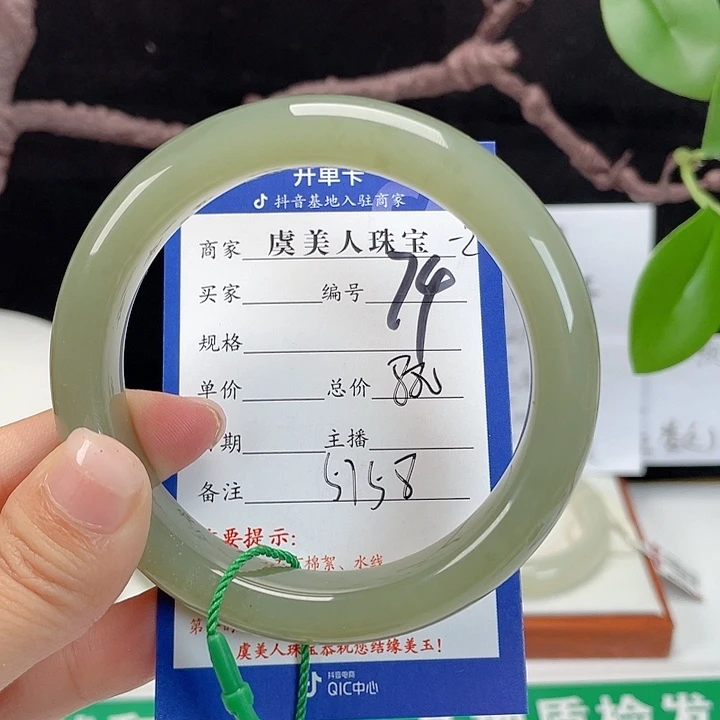 开单卡
抖音基地入驻商家
商家 虞美人珠宝 -2
买家 编号 74
规格
单价 总价
期 主播
备注 5758
要提示:
棉絮、水线
第
虞美人珠宝恭祝您结缘美玉!
抖音电商
QIC中心
质检发